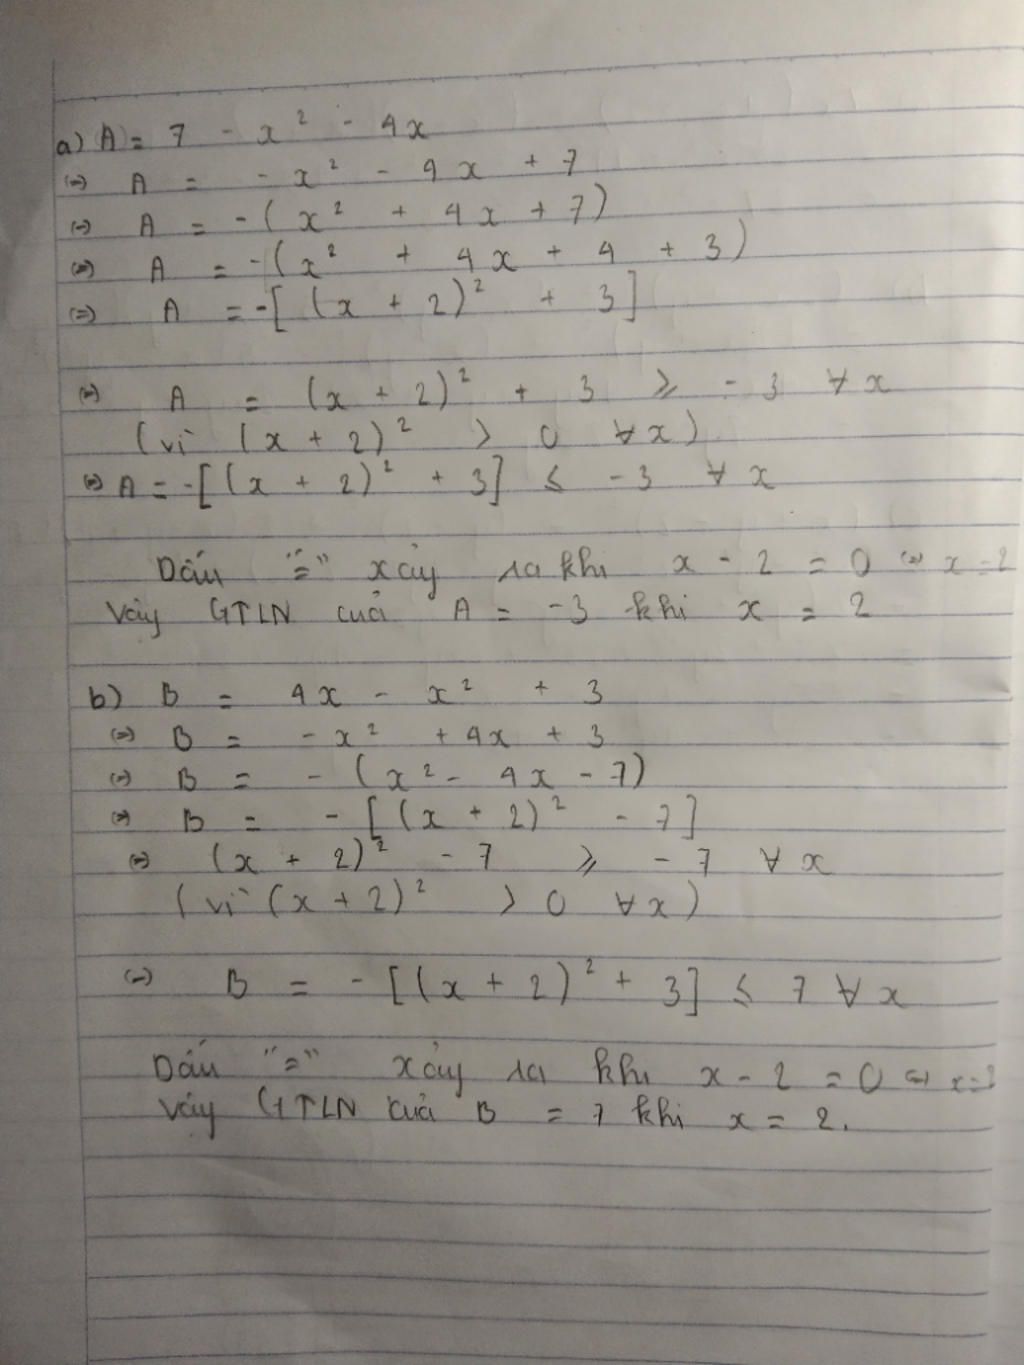 a) A = 7 - x² - 4x
(=) A = - x² - 4x + 7
(=) A = - (x² + 4x + 7)
(=) A = - (x² + 4x + 4 + 3)
(=) A = - [(x + 2)² + 3]
(=) A = (x + 2)² + 3 ≥ - 3 ∀ x
(vì (x + 2)² > 0 ∀ x)
(=) A = - [(x + 2)² + 3] ≤ - 3 ∀ x
Dấu "=" xảy ra khi x - 2 = 0 (=) x = 2
Vậy GTLN của A = -3 khi x = 2
b) B = 4x - x² + 3
(=) B = - x² + 4x + 3
(=) B = - (x² - 4x - 7)
(=) B = - [(x + 2)² - 7]
(=) (x + 2)² - 7 ≥ - 7 ∀ x
(vì (x + 2)² > 0 ∀ x)
(=) B = - [(x + 2)² + 3] ≤ 7 ∀ x
Dấu "=" xảy ra khi x - 2 = 0 (=) x = 2
Vậy GTLN của B = 7 khi x = 2.